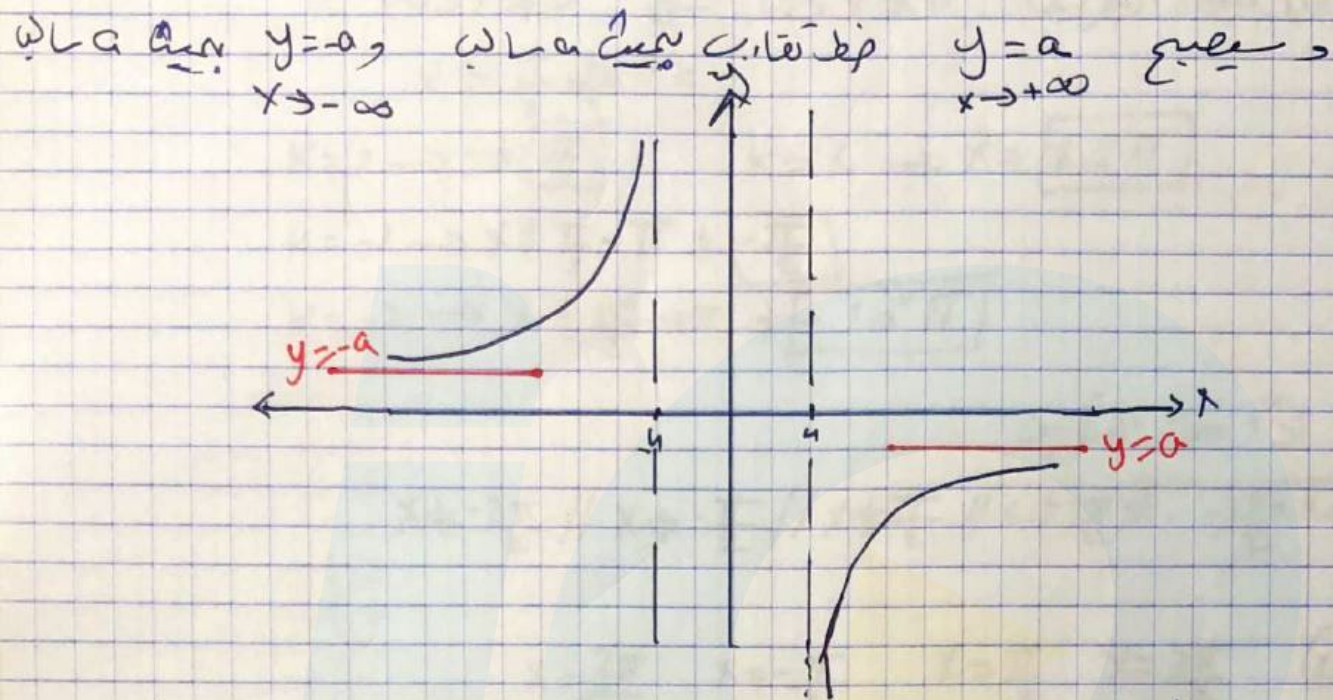 وسيصبح y = a خط تقارب بحيث a سالب و y = -a بحيث a سالب
x → +∞ x → -∞
y
y = -a
x
-4 4
y = a